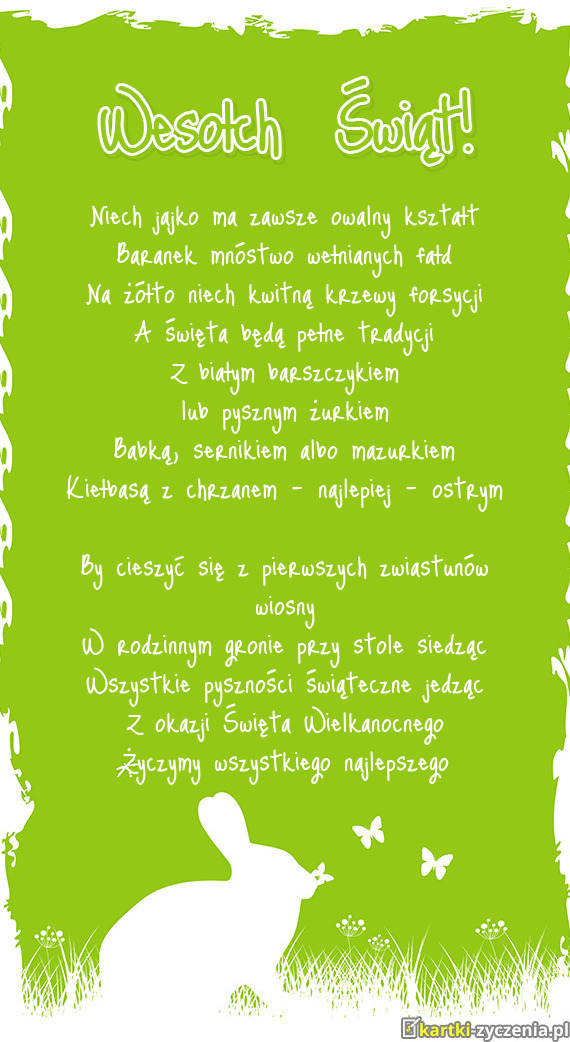 Wesołch Świąt!
Niech jajko ma zawsze owalny kształt
Baranek mnóstwo wełnianych fałd
Na żółto niech kwitną krzewy forsycji
A święta będą pełne tradycji
Z białym barszczykiem
lub pysznym żurkiem
Babką, sernikiem albo mazurkiem
Kiełbasą z chrzanem - najlepiej - ostrym
By cieszyć się z pierwszych zwiastunów
wiosny
W rodzinnym gronie przy stole siedząc
Wszystkie pyszności świąteczne jedząc
Z okazji Święta Wielkanocnego
Życzymy wszystkiego najlepszego
kartki-zyczenia.pl